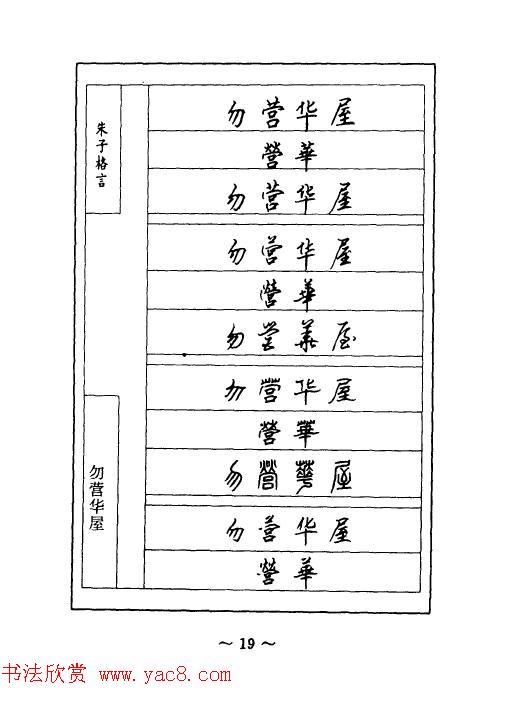 朱子格言
勿营华屋
勿营华屋
營華
勿营华屋
勿营华屋
營華
勿营华屋
勿营华屋
營華
勿營華屋
勿营华屋
營華
~ 19 ~
书法欣赏 www.yac8.com